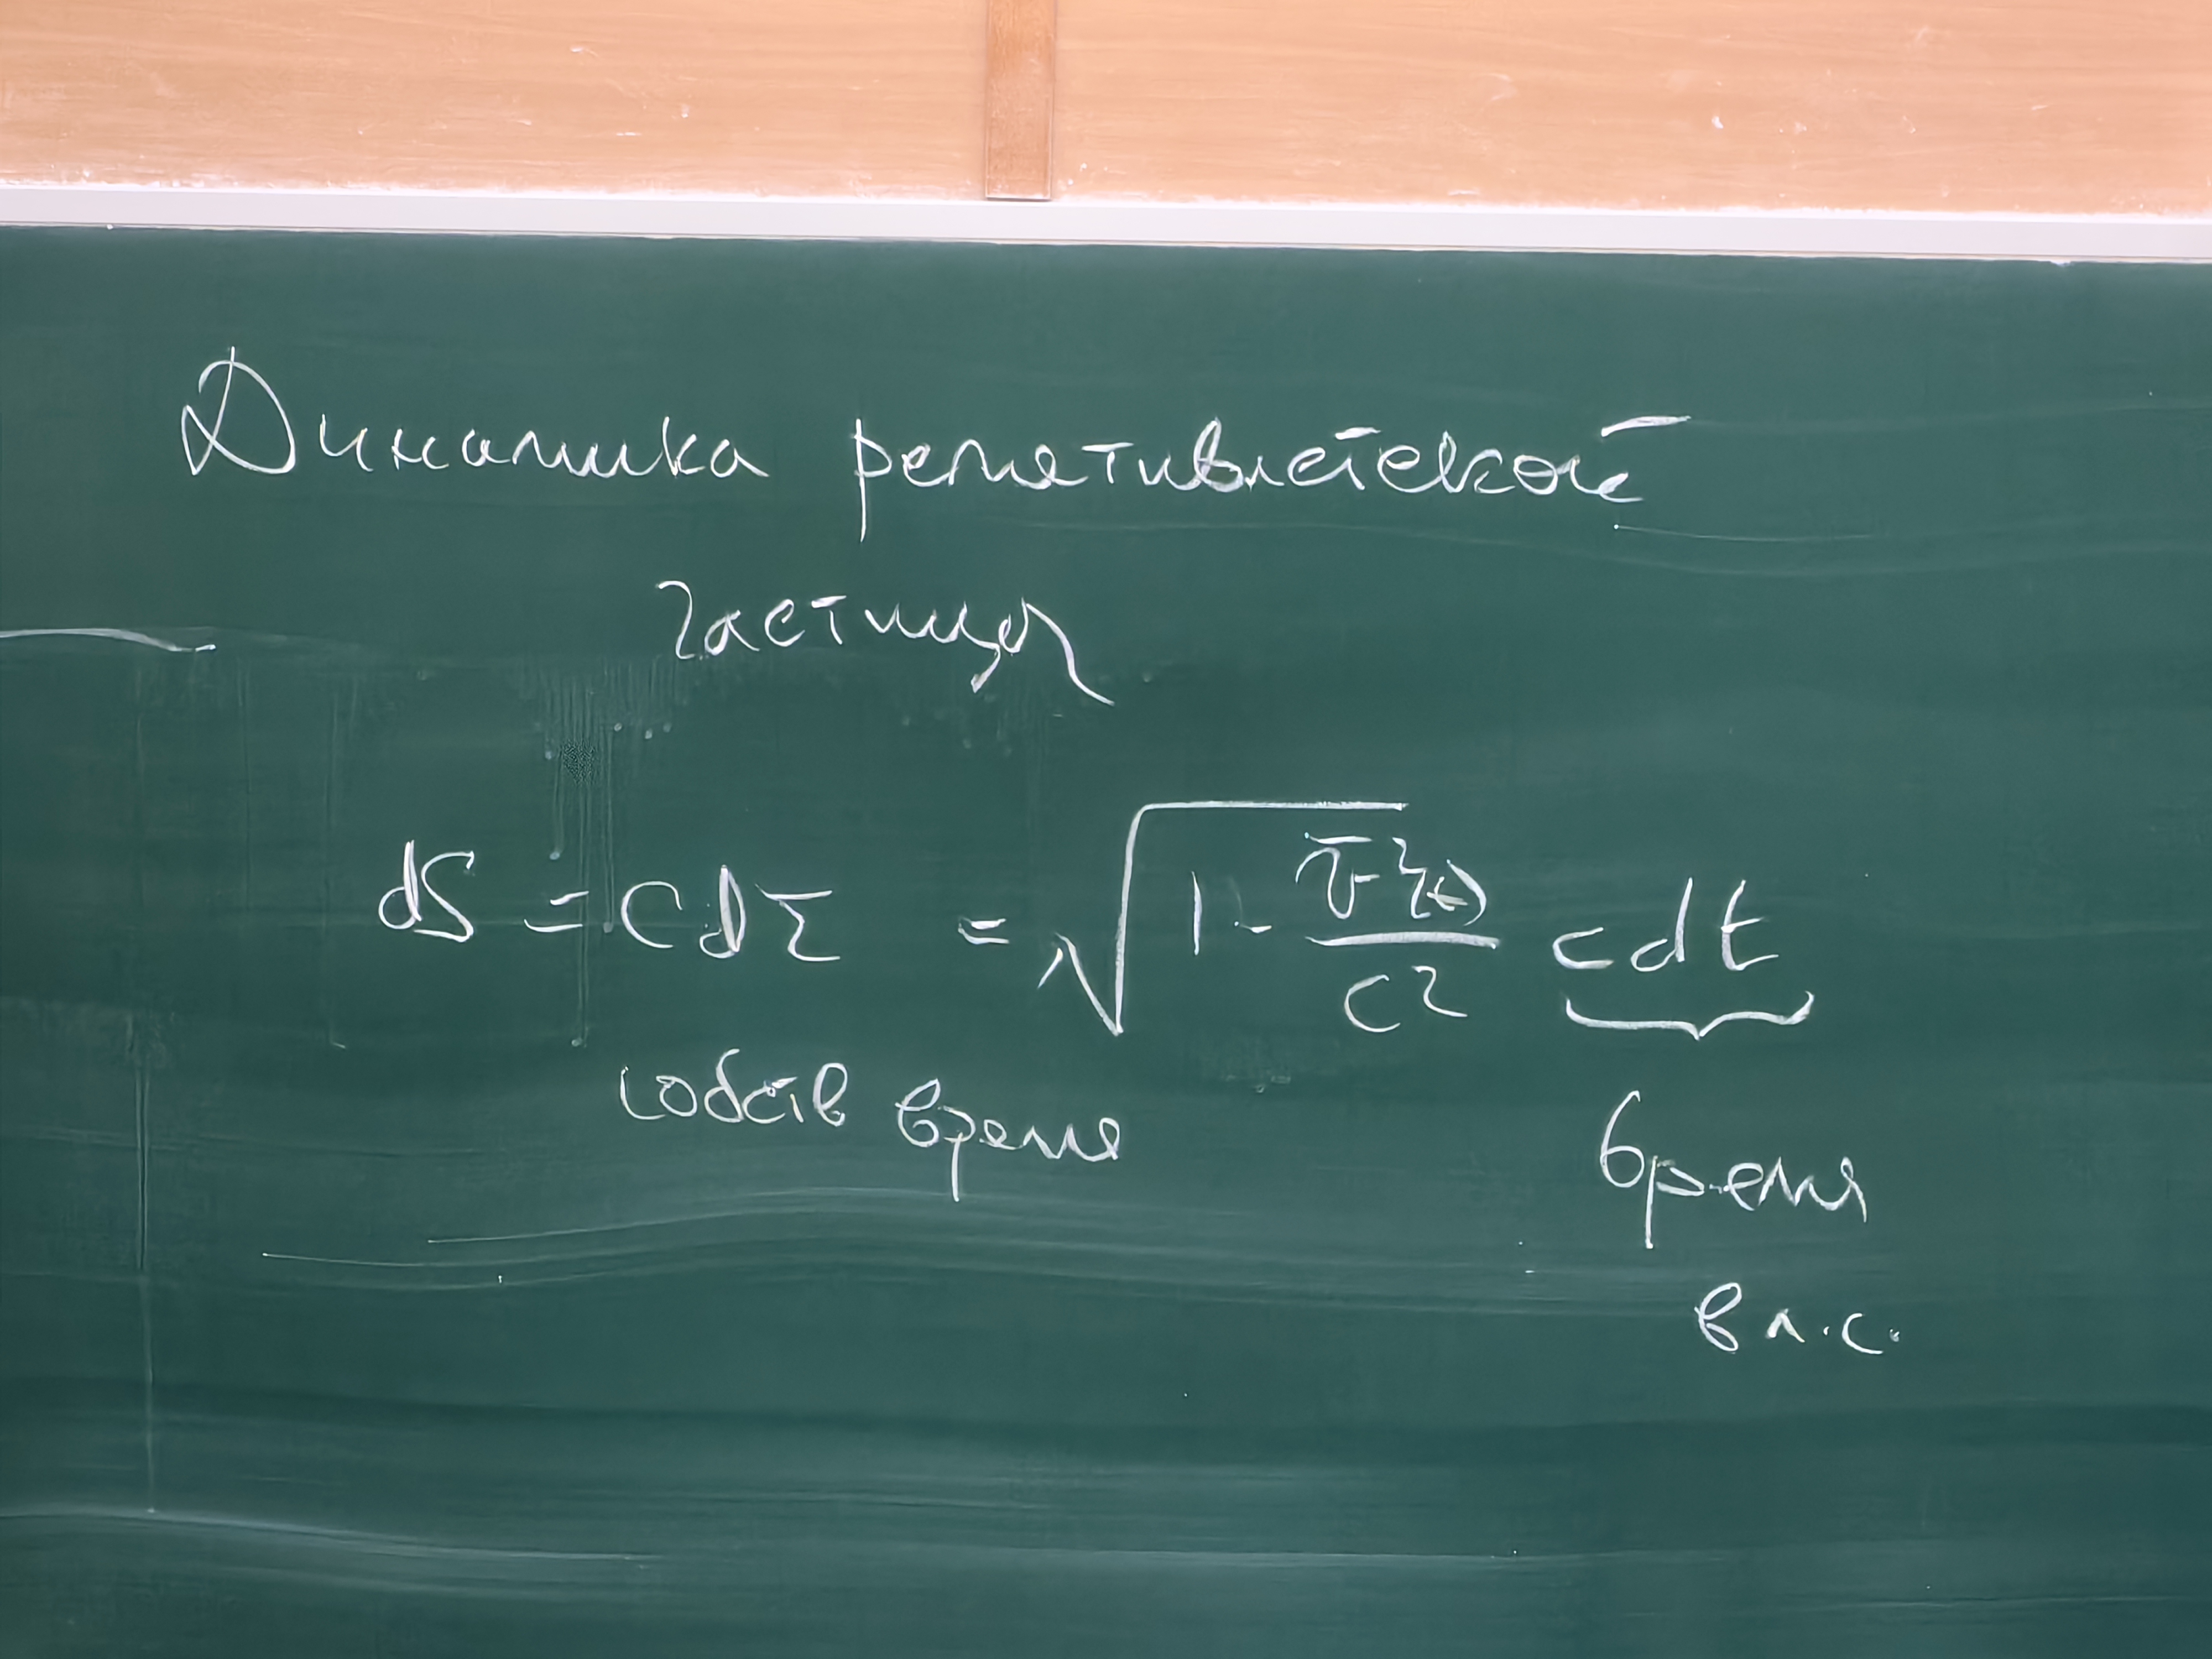 Динамика релятивистской
частицы
dS = cdτ = √(1 - v̄²(t)/c²) cdt
собств время
время
в л.с.